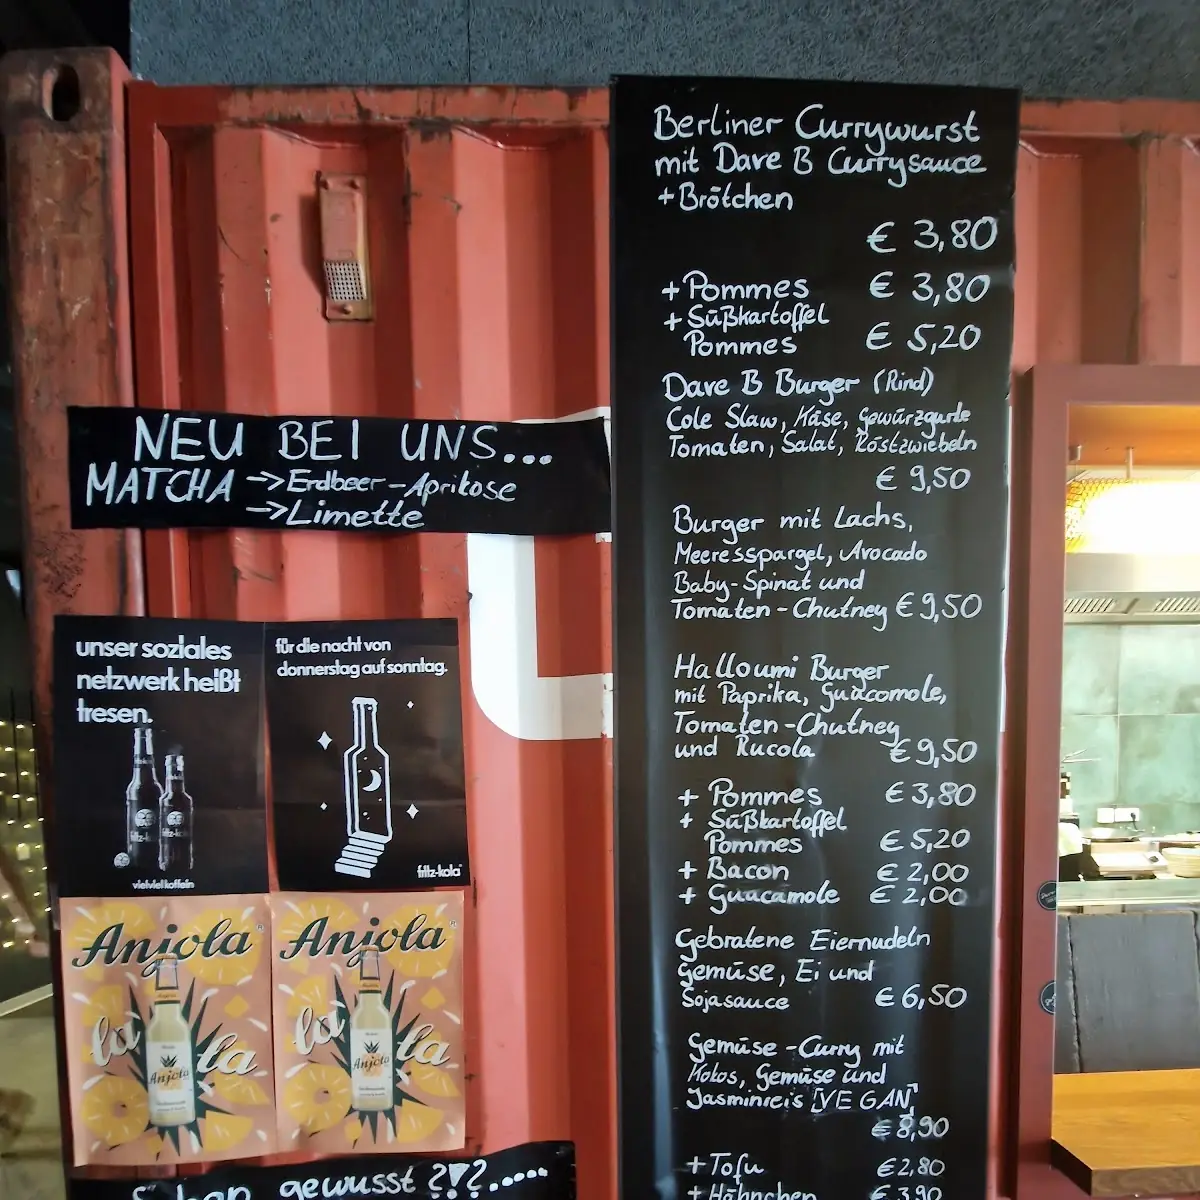 Berliner Currywurst
mit Dave B Currysauce
+ Brötchen
€ 3,80
+ Pommes € 3,80
+ Süßkartoffel
Pommes € 5,20
Dave B Burger (Rind)
Cole Slaw, Käse, Gewürzgurke
Tomaten, Salat, Röstzwiebeln
€ 9,50
Burger mit Lachs,
Meeresspargel, Avocado
Baby-Spinat und
Tomaten-Chutney € 9,50
Halloumi Burger
mit Paprika, Guacomole,
Tomaten-Chutney
und Rucola € 9,50
+ Pommes € 3,80
+ Süßkartoffel
Pommes € 5,20
+ Bacon € 2,00
+ Guacamole € 2,00
Gebratene Eiernudeln
Gemüse, Ei und
Sojasauce € 6,50
Gemüse-Curry mit
Kokos, Gemüse und
Jasminreis [VEGAN]
€ 8,90
+ Tofu € 2,80
+ Hähnchen € 3,90
NEU BEI UNS...
MATCHA -> Erdbeer-Aprikose
-> Limette
unser soziales
netzwerk heißt
tresen.
vielvielkoffein
für die nacht von
donnerstag auf sonntag.
fritz-kola
Anjola
la la
Anjola
Anjola
la la
Anjola
Schon gewusst ?!?.....